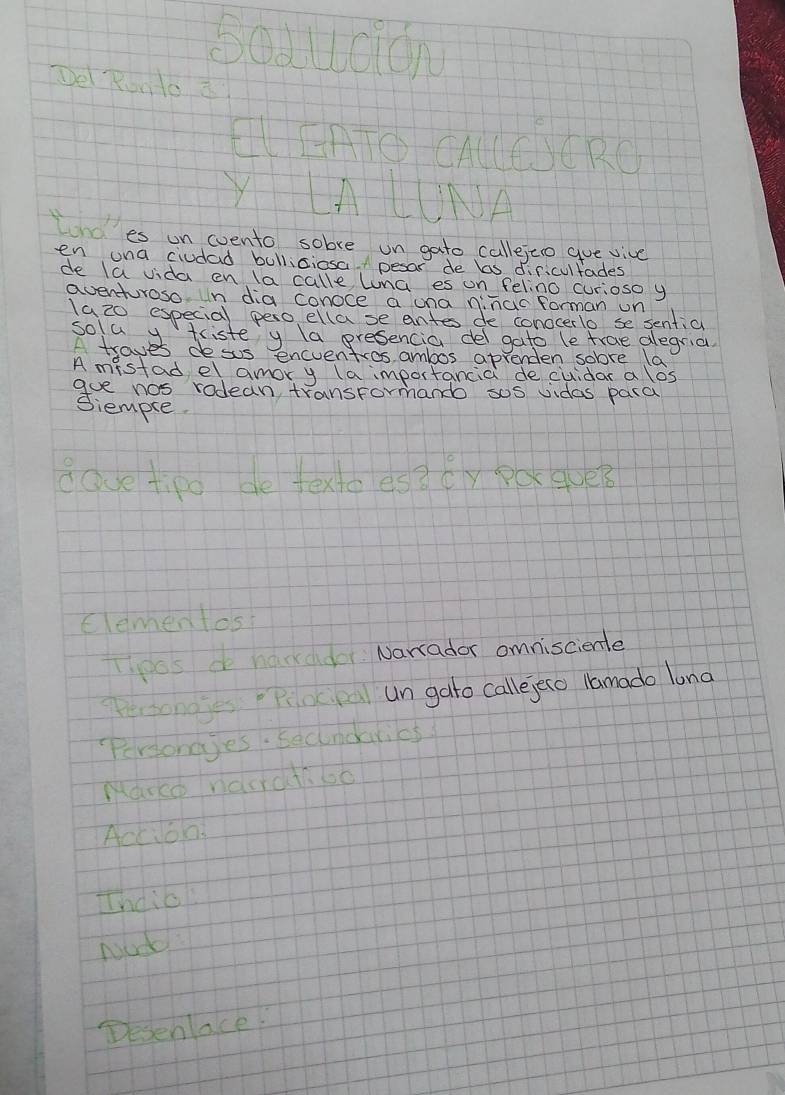 Solución
Del Punto 3
EL GATO CALLEJERO
Y LA LUNA
"Luna" es un cuento sobre un gato callejero que vive
en una ciudad bulliciosa. A pesar de las dificultades
de la vida en la calle, Luna es un felino curioso y
aventuroso. Un dia conoce a una niña forman un
lazo especial pero ella se antes de conocerlo se sentia
sola y triste y la presencia del gato le trae alegria.
A traves de sus encuentros, ambos aprenden sobre la
Amistad, el amor y la importancia de cuidar a los
que nos rodean, transformando sus vidas para
Siempre.
¿Que tipo de texto es? ¿y porque?
Elementos:
Tipos de narrador: Narrador omnisciente
Personajes • Principal un gato callejero llamado luna
Personajes. Secundarios:
Marco narrativo
Acción:
Incio:
Nudo:
Desenlace: